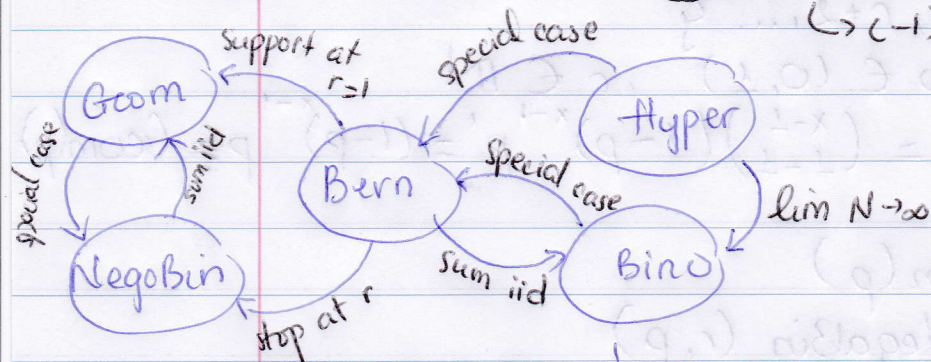 ↳ (-1)
support at
r=1
special case
Geom
Hyper
special case
sum iid
Bern
special case
lim N→∞
NegoBin
sum iid
Bino
stop at r